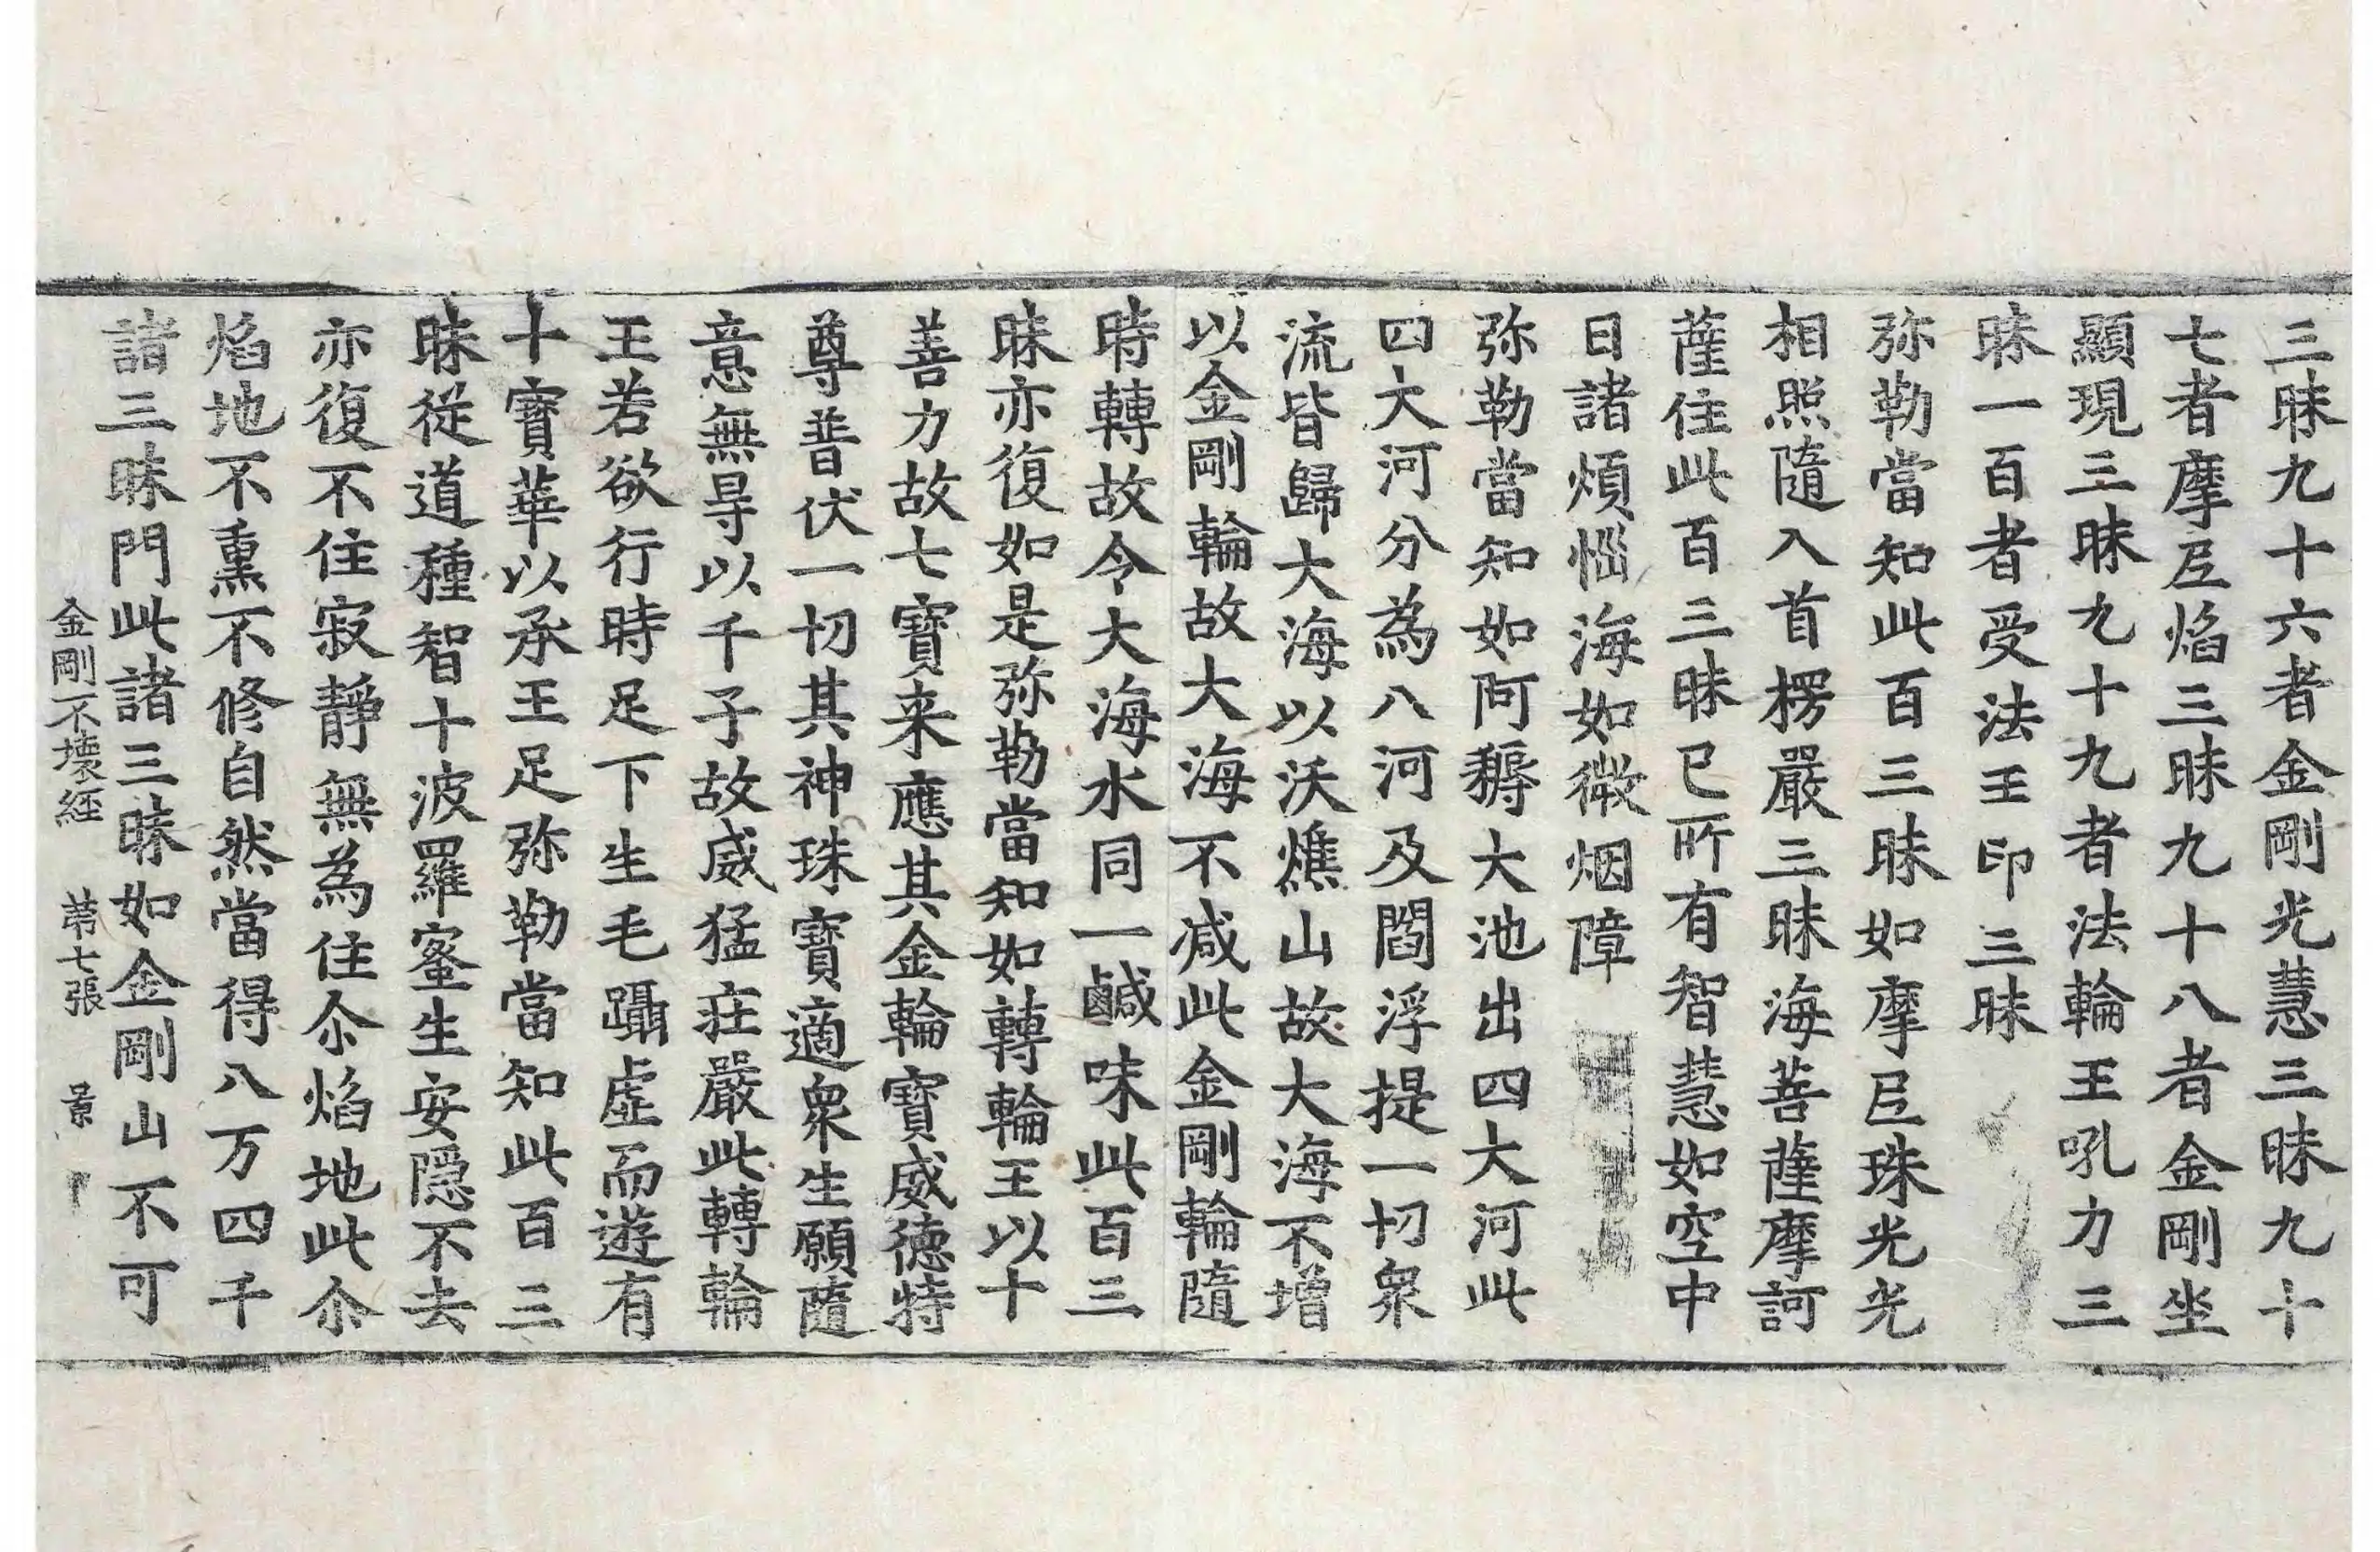 三昧九十六者金剛光慧三昧九十
七者摩𡰱焰三昧九十八者金剛坐
顯現三昧九十九者法輪王吼力三
昧一百者受法王印三昧
弥勒當知此百三昧如摩𡰱珠光光
相照隨入首楞嚴三昧海菩薩摩訶
薩住此百三昧已所有智慧如空中
日諸煩惱海如微烟障
弥勒當知如阿耨大池出四大河此
四大河分為八河及閻浮提一切衆
流皆歸大海以沃燋山故大海不增
以金剛輪故大海不减此金剛輪隨
時轉故令大海水同一鹹味此百三
昧亦復如是弥勒當知如轉輪王以十
善力故七寶来應其金輪寶威德特
尊普伏一切其神珠寶適衆生願隨
意無㝵以千子故威猛莊嚴此轉輪
王若欲行時足下生毛躡虛而遊有
十寶華以承王足弥勒當知此百三
昧從道種智十波羅蜜生安隱不去
亦復不住寂靜無為住尒焰地此尒
焰地不熏不修自然當得八万四千
諸三昧門此諸三昧如金剛山不可
金剛不壞經 苐七張 景